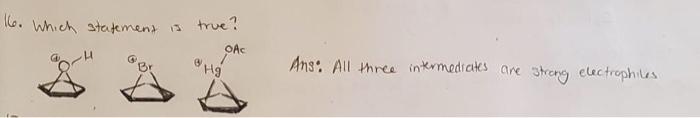 16. Which statement is true?
⊕O-H ⊕Br ⊕Hg OAc
Ans: All three intermediates are strong electrophiles